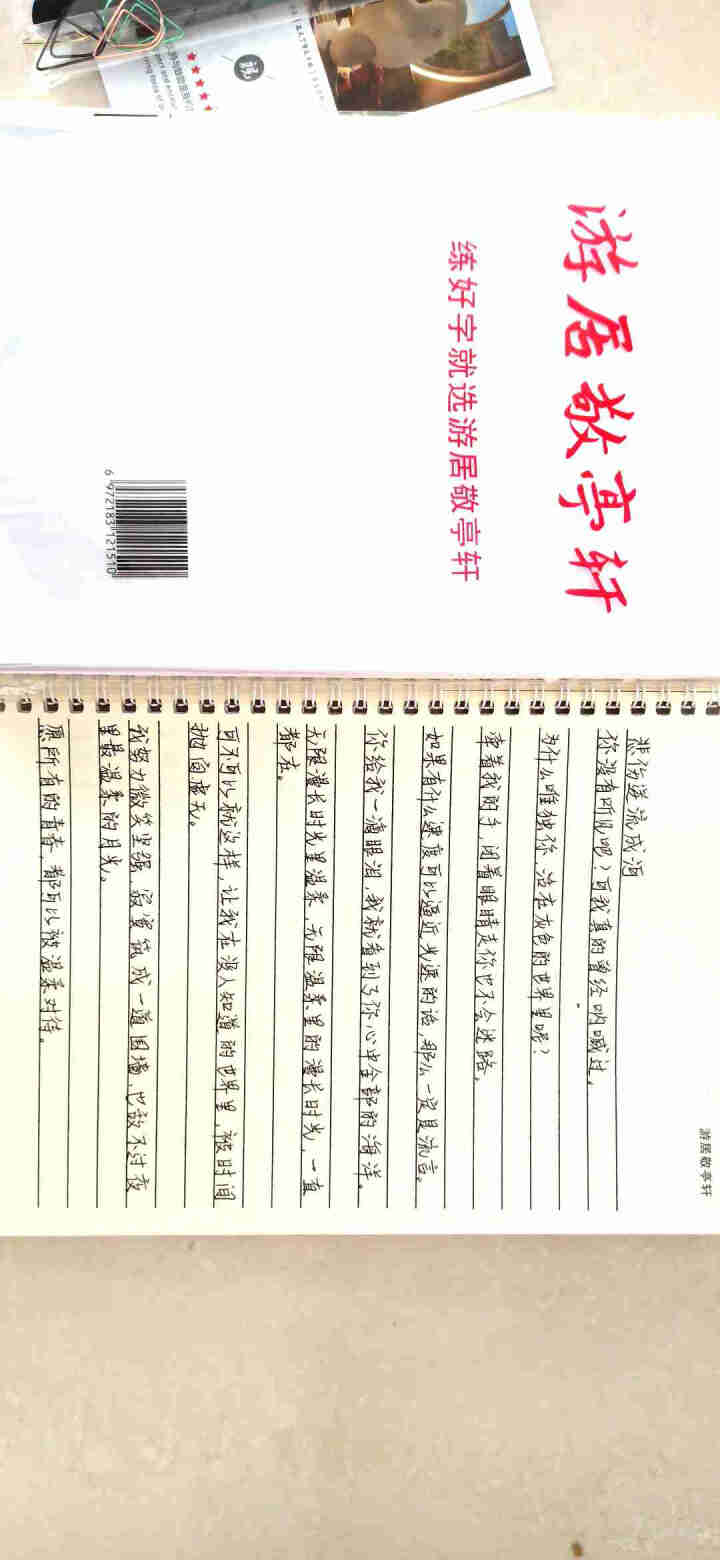 游居敬亭轩
练好字就选游居敬亭轩
6 972183 121510
游居敬亭轩
悲伤逆流成河
你没有听见吧？可我真的曾经呐喊过，
为什么唯独你，活在灰色的世界里呢？
牵着我的手，闭着眼睛走你也不会迷路。
如果有什么速度可以逼近光速的话，那么一定是流言。
你给我一滴眼泪，我就看到了你心中全部的海洋。
无限漫长时光里温柔，无限温柔里的漫长时光，一直
都在。
可不可以就这样，让我在没人知道的世界里，被时间
抛向虚无。
我努力微笑坚强，寂寞筑成一道围墙，也敌不过夜
里最温柔的月光。
愿所有的青春，都可以被温柔对待。